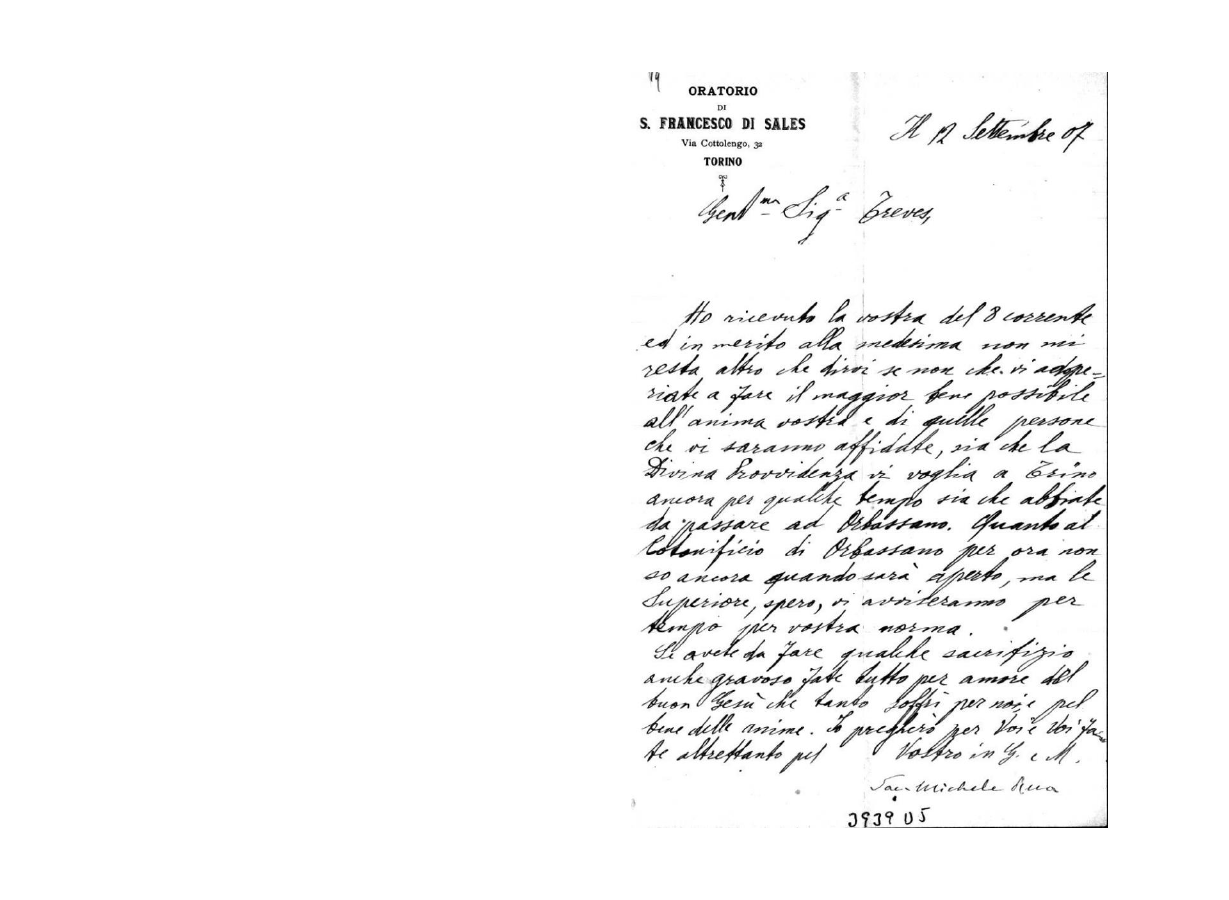 19
ORATORIO
DI
S. FRANCESCO DI SALES
Via Cottolengo, 32
TORINO
Il 12 Settembre 07
Gent.ma Sig.a Treves,
Ho ricevuto la vostra del 8 corrente
ed in merito alla medesima non mi
resta altro che dirvi se non che vi adope-
riate a fare il maggior bene possibile
all'anima vostra e di quelle persone
che vi saranno affidate, sia che la
Divina Provvidenza vi voglia a Trino
ancora per qualche tempo sia che abbiate
da passare ad Orbassano. Quanto al
Cotonificio di Orbassano per ora non
so ancora quando sarà aperto, ma le
Superiore, spero, vi avviseranno per
tempo per vostra norma.
Se avete da fare qualche sacrifizio
anche gravoso fate tutto per amore del
buon Gesù che tanto soffrì per noi e pel
bene delle anime. Io pregherò per Voi e Voi fa-
te altrettanto pel Vostro in G. e M.
Sac. Michele Rua
3939 05